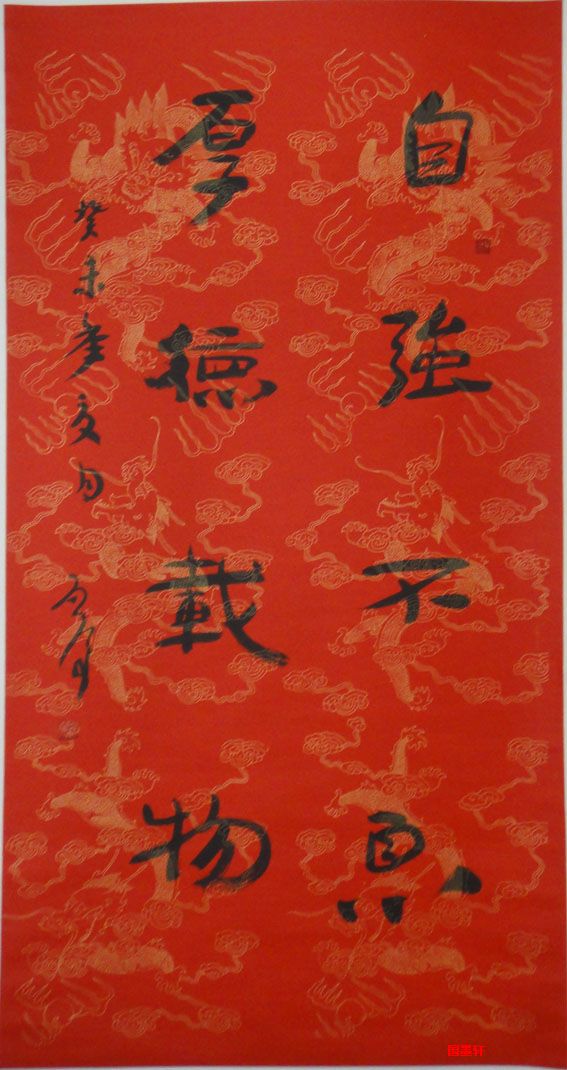 自強不息
厚德載物
癸未年夏月
国墨轩